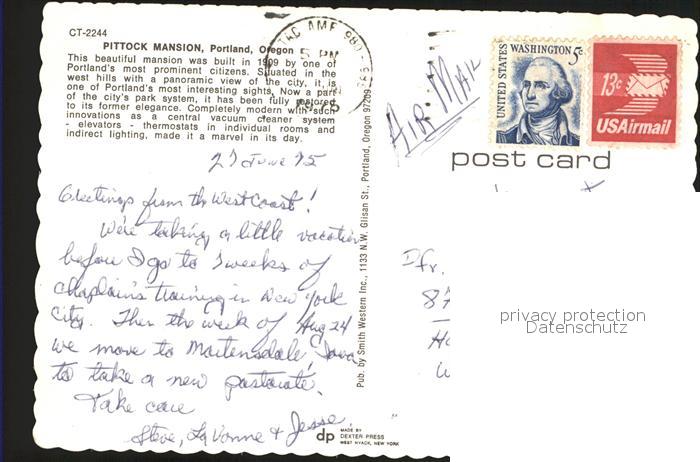 CT-2244
PITTOCK MANSION, Portland, Oregon
This beautiful mansion was built in 1909 by one of
Portland's most prominent citizens. Situated in the
west hills with a panoramic view of the city, it is
one of Portland's most interesting sights. Now a part
of the city's park system, it has been fully restored
to its former elegance. Completely modern with such
innovations as a central vacuum cleaner system
- elevators - thermostats in individual rooms and
indirect lighting, made it a marvel in its day.
5 PM
UNITED STATES
WASHINGTON 5c
13c
USAirmail
AIR MAIL
post card
27 June 75
Greetings from the West Coast!
We're taking a little vacation
before I go to 7 weeks of
Chaplain's training in New York
City. Then the week of Aug 24
we move to Martensdale, Iowa
to take a new pastorate.
Take care
Steve, LaVonne & Jesse
Pub. by Smith Western Inc., 1133 N.W. Glisan St., Portland, Oregon 97209
Dfr.
87
Ho
W
privacy protection
Datenschutz
dp
MADE BY
DEXTER PRESS
WEST NYACK, NEW YORK